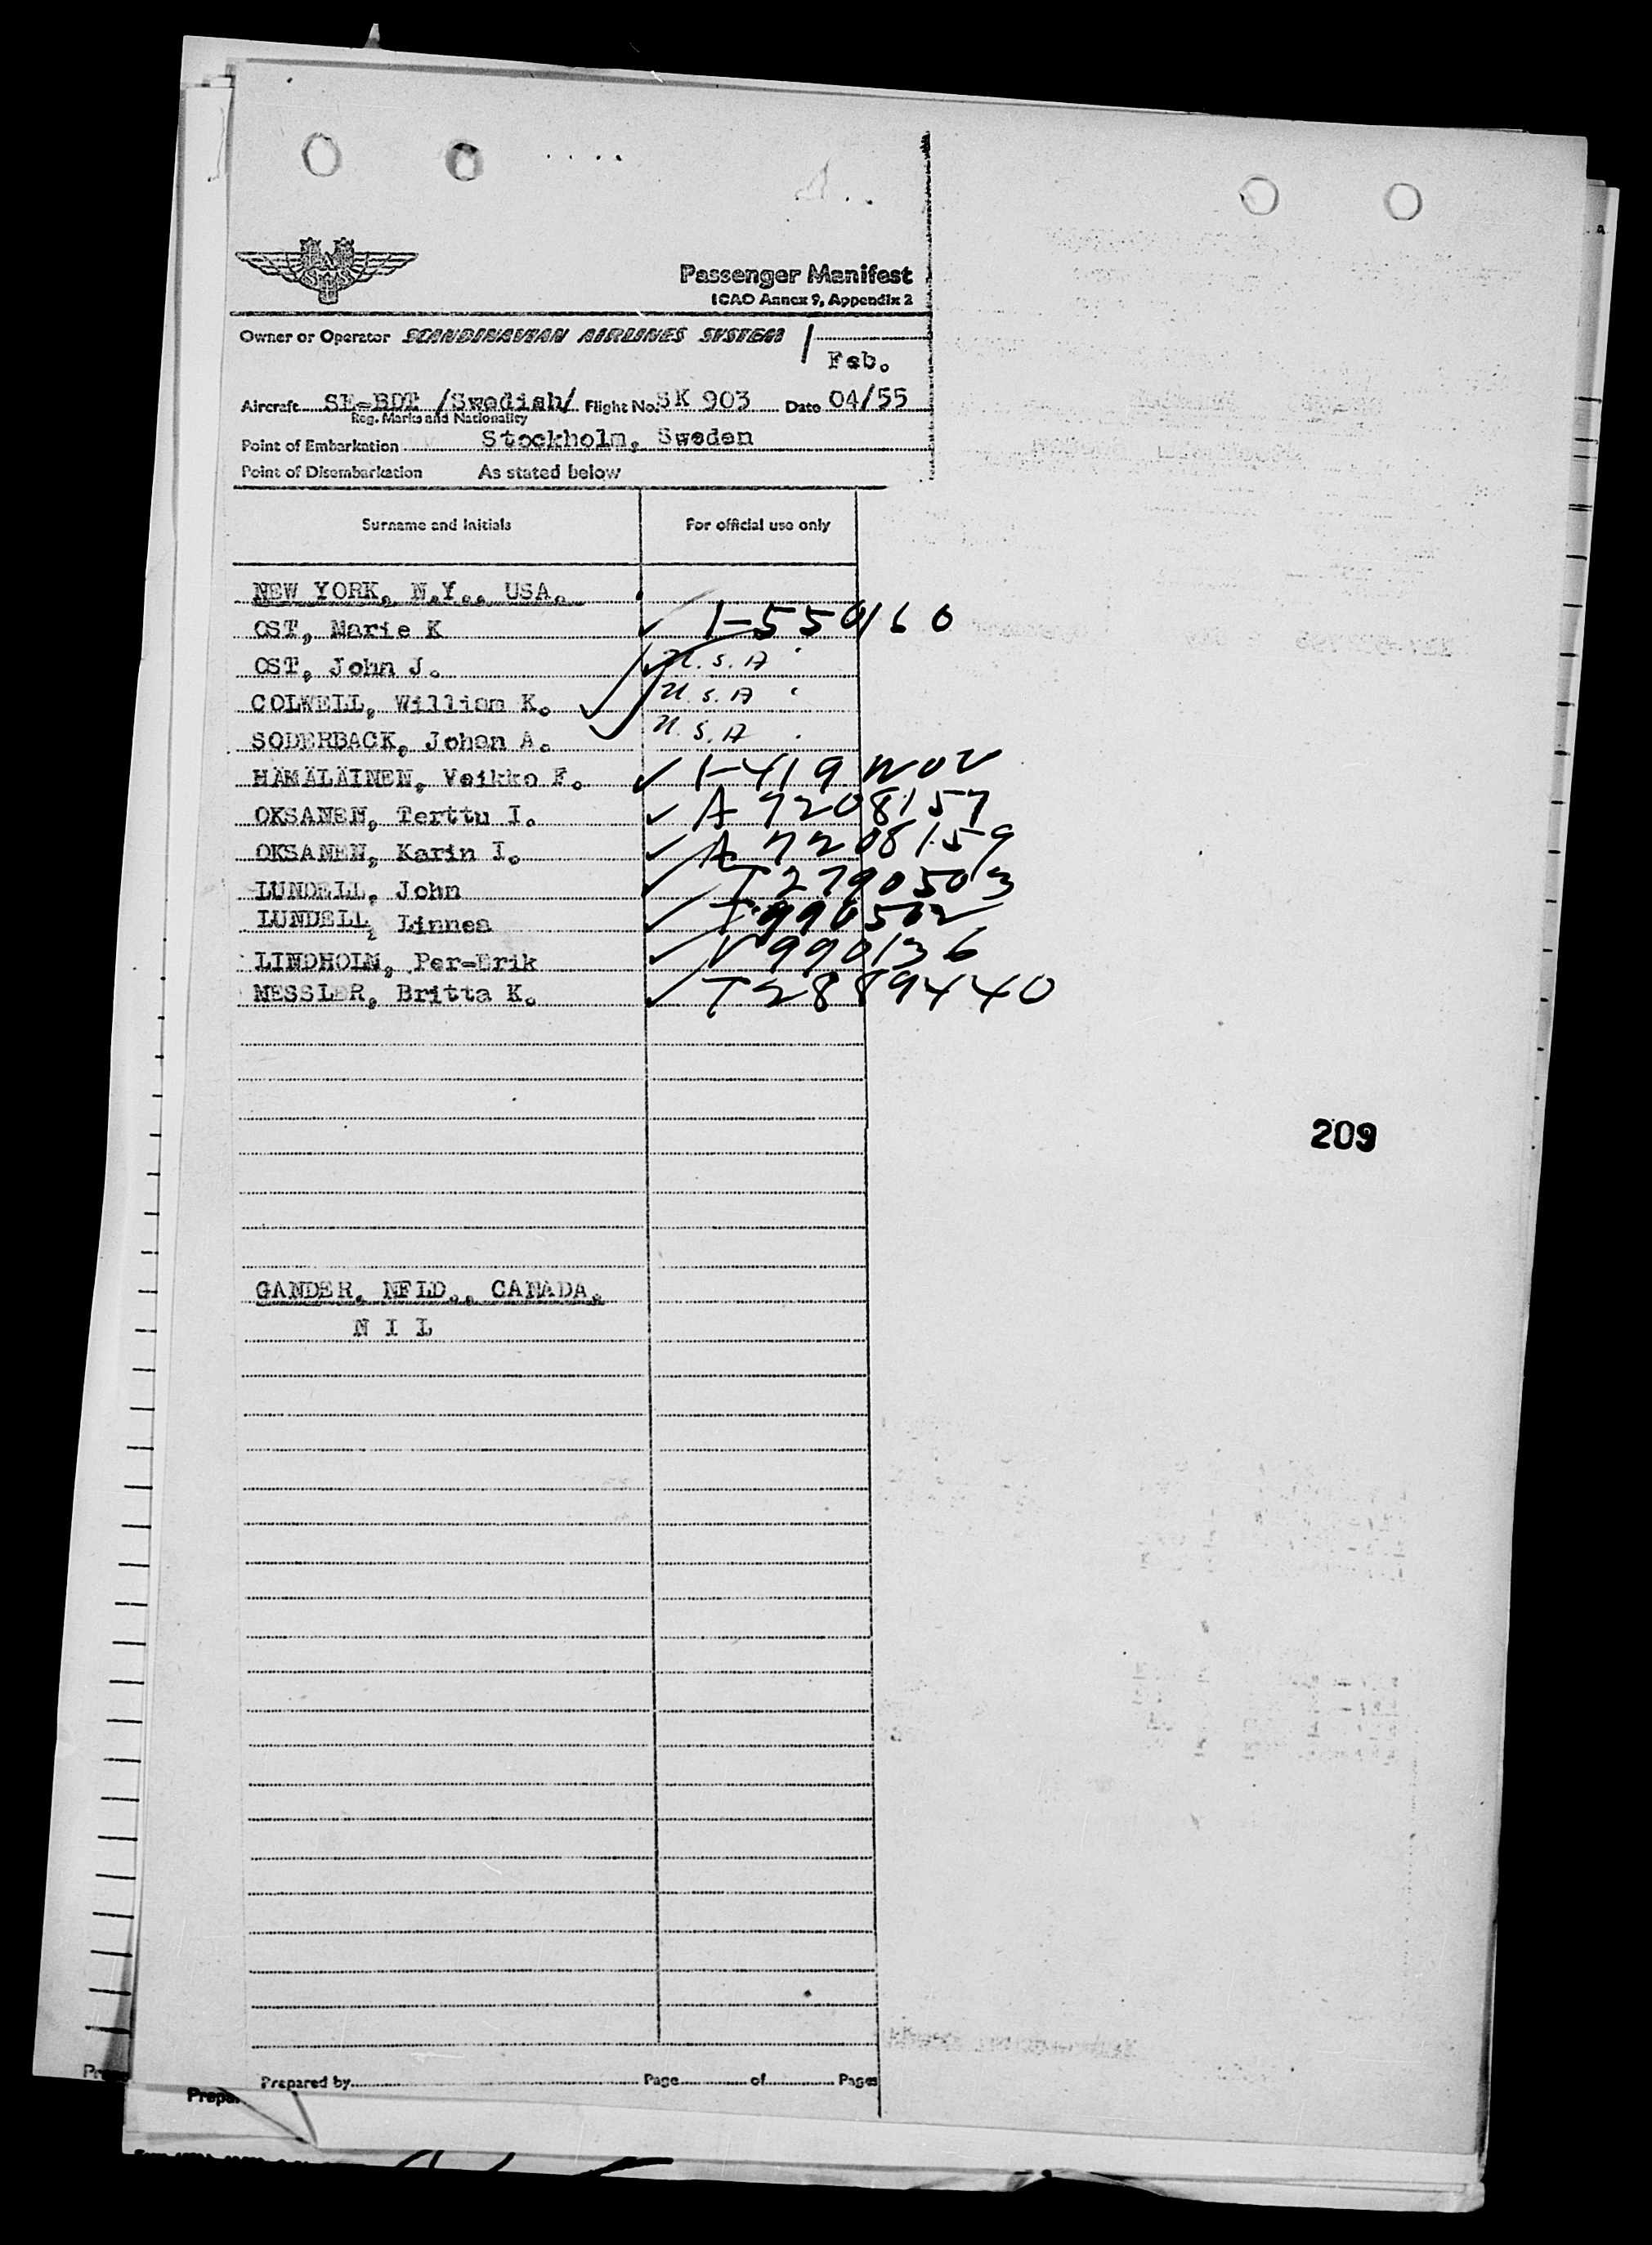 Passenger Manifest
ICAO Annex 9, Appendix 2
Owner or Operator SCANDINAVIAN AIRLINES SYSTEM
Feb.
Aircraft SE-BDT /Swedish/ Flight No. SK 903 Date 04/55
Reg. Marks and Nationality
Point of Embarkation Stockholm, Sweden
Point of Disembarkation As stated below
Surname and Initials For official use only
NEW YORK, N.Y., USA.
OST, Marie K 1-550160
OST, John J. U.S.A
COLWELL, William K. U.S.A
SODERBACK, Johan A. U.S.A
HÄMÄLÄINEN, Veikko F. 1-419
OKSANEN, Terttu I. A 7208157
OKSANEN, Karin I. A 7208159
LUNDELL, John T 2790503
LUNDELL, Linnea
LINDHOLM, Per-Erik V 990136
MESSLER, Britta K. T 2889440
209
GANDER, NFLD., CANADA.
N I L
Prepared by Page of Pages